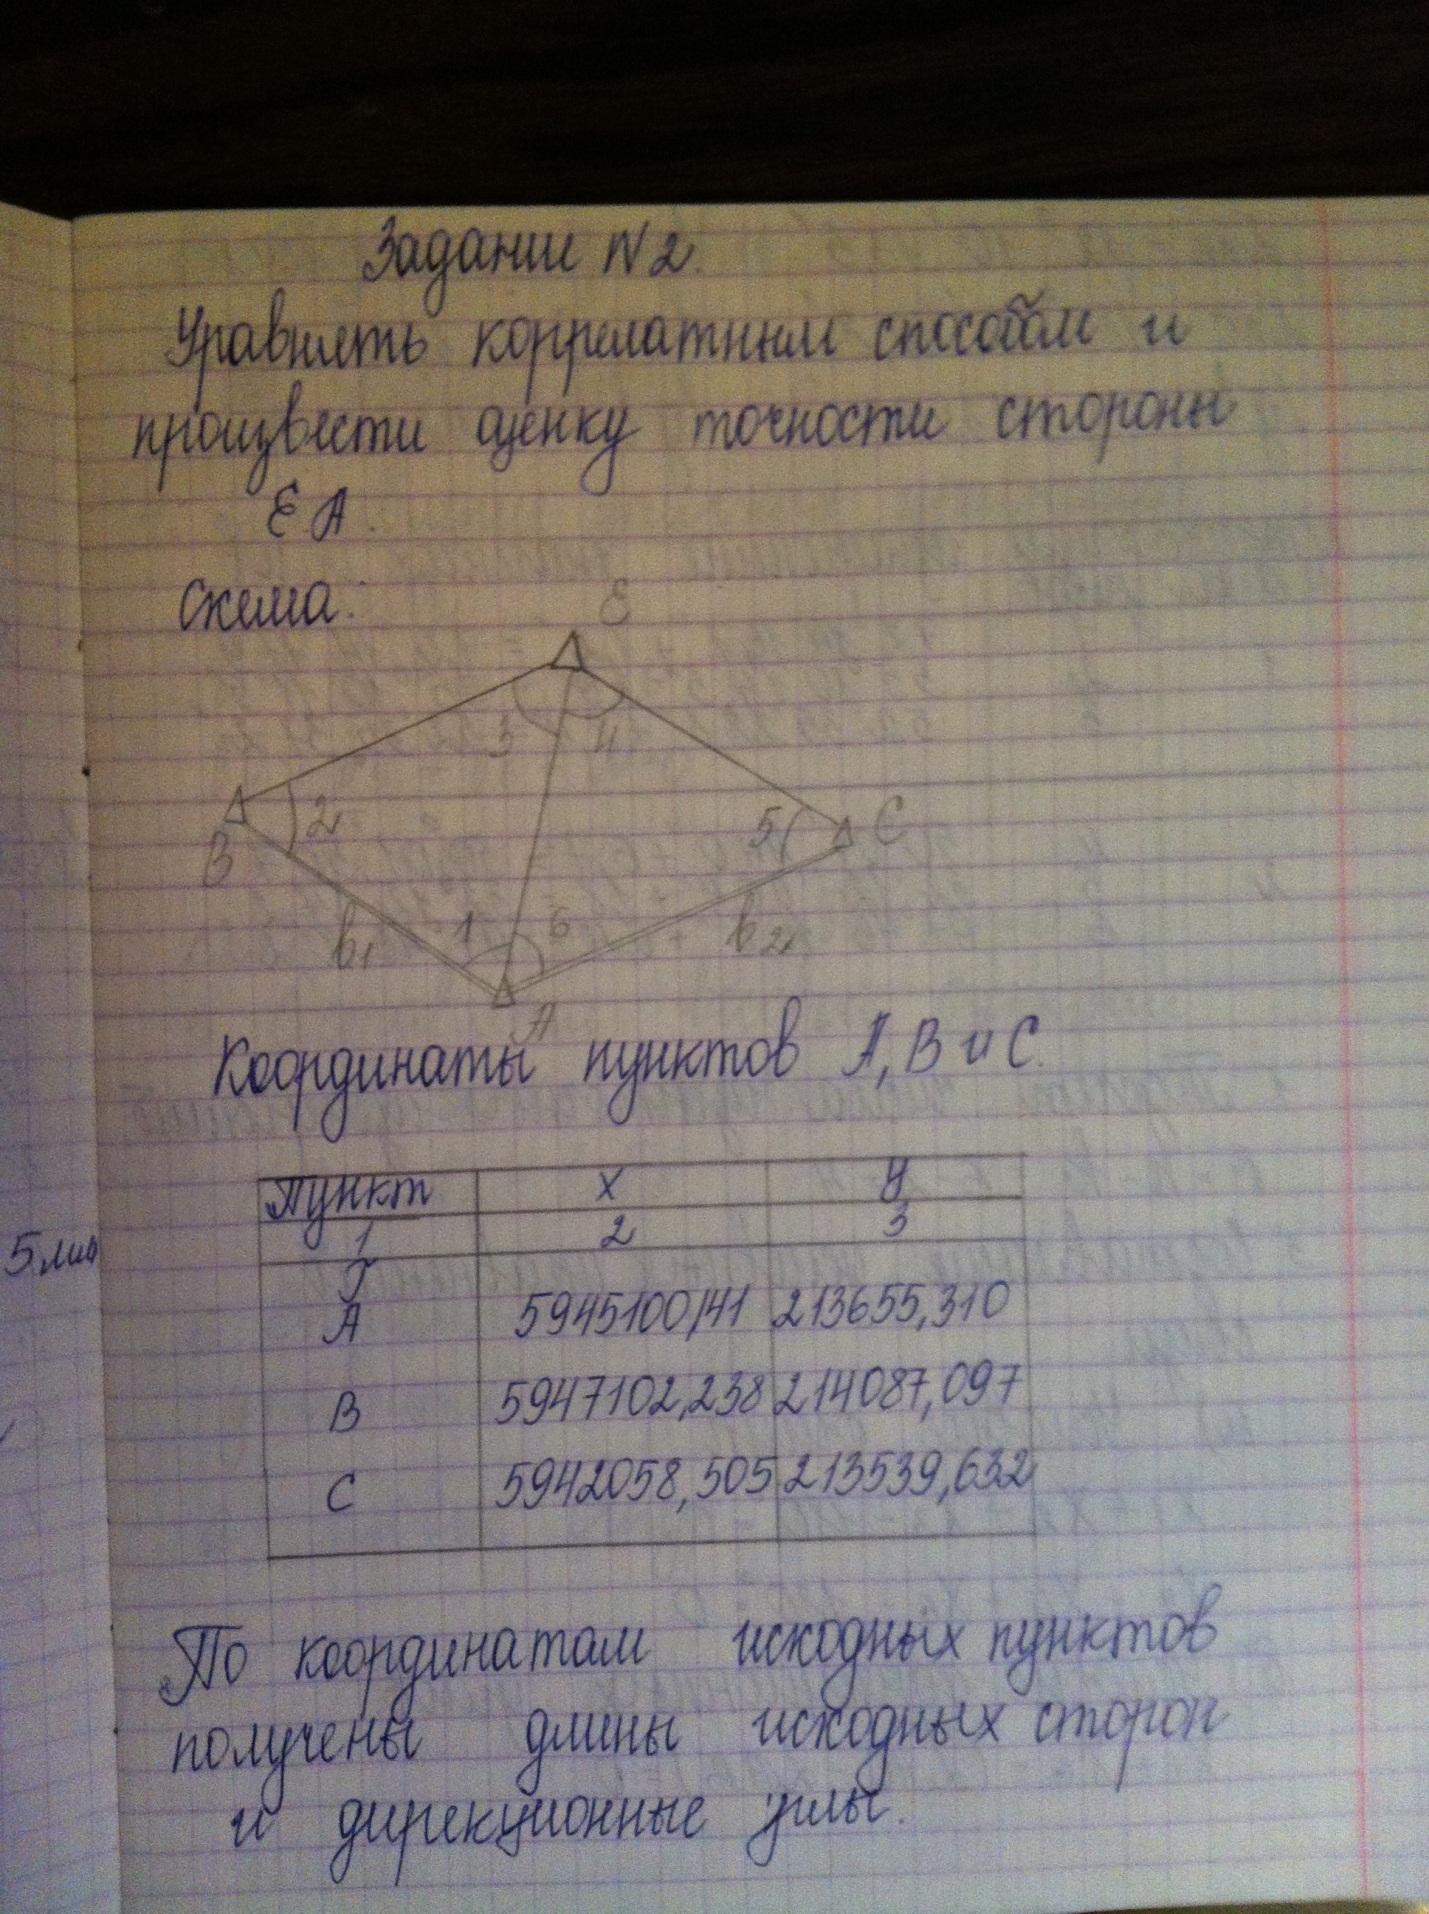 Задание N2.
Уравнять коррелатным способом и
произвести оценку точности стороны
EA.
Схема:
E
3 4
B 2 5 C
b1 1 6 b2
A
Координаты пунктов A, B и C.
Пункт x y
1 2 3
5 мид
A 5945100,141 213655,310
B 5947102,238 214087,097
C 5942058,505 213539,632
По координатам исходных пунктов
получены длины исходных сторон
и дирекционные углы.